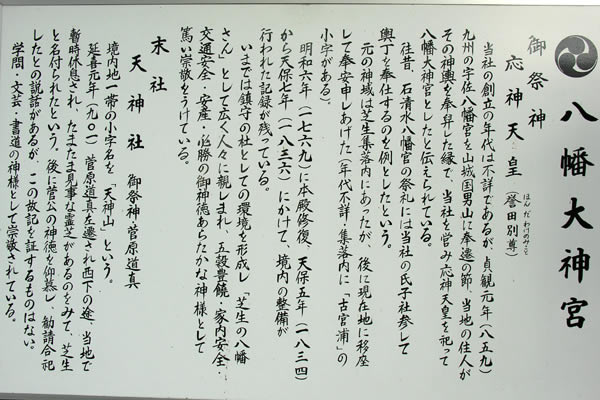 八幡大神宮
御祭神
応神天皇（誉田別尊）
ほんだわけのみこと
当社の創立の年代は不詳であるが、貞観元年（八五九）
九州の宇佐八幡宮を山城国男山に奉遷の節、当地の住人が
その神輿を奉舁した縁で、当社を営み応神天皇を祀って
八幡大神宮としたと伝えられている。
往昔、石清水八幡宮の祭礼には当社の氏子社参して
輿丁を奉仕するのを例としたという。
元の神域は芝生集落内にあったが、後に現在地に移座
して奉安申しあげた（年代不詳・集落内に「古宮浦」の
小字がある）。
明和六年（一七六九）に本殿修復、天保五年（一八三四）
から天保七年（一八三六）にかけて、境内の整備が
行われた記録が残っている。
いまでは鎮守の杜としての環境を形成し「芝生の八幡
さん」として広く人々に親しまれ、五穀豊饒・家内安全・
交通安全・安産・必勝の御神徳あらたかな神様として
篤い崇敬をうけている。
末社
天神社 御祭神 菅原道真
境内地一帯の小字名を、「天神山」という。
延喜元年（九〇一）菅原道真左遷され西下の途、当地で
暫時休息され、たまたま見事な霊芝があるのをみて、芝生
と名付られたという。後に菅公の神徳を仰慕し、勧請合祀
したとの説話があるが、この故記を証するものはない。
学問・文芸・書道の神様として崇敬されている。